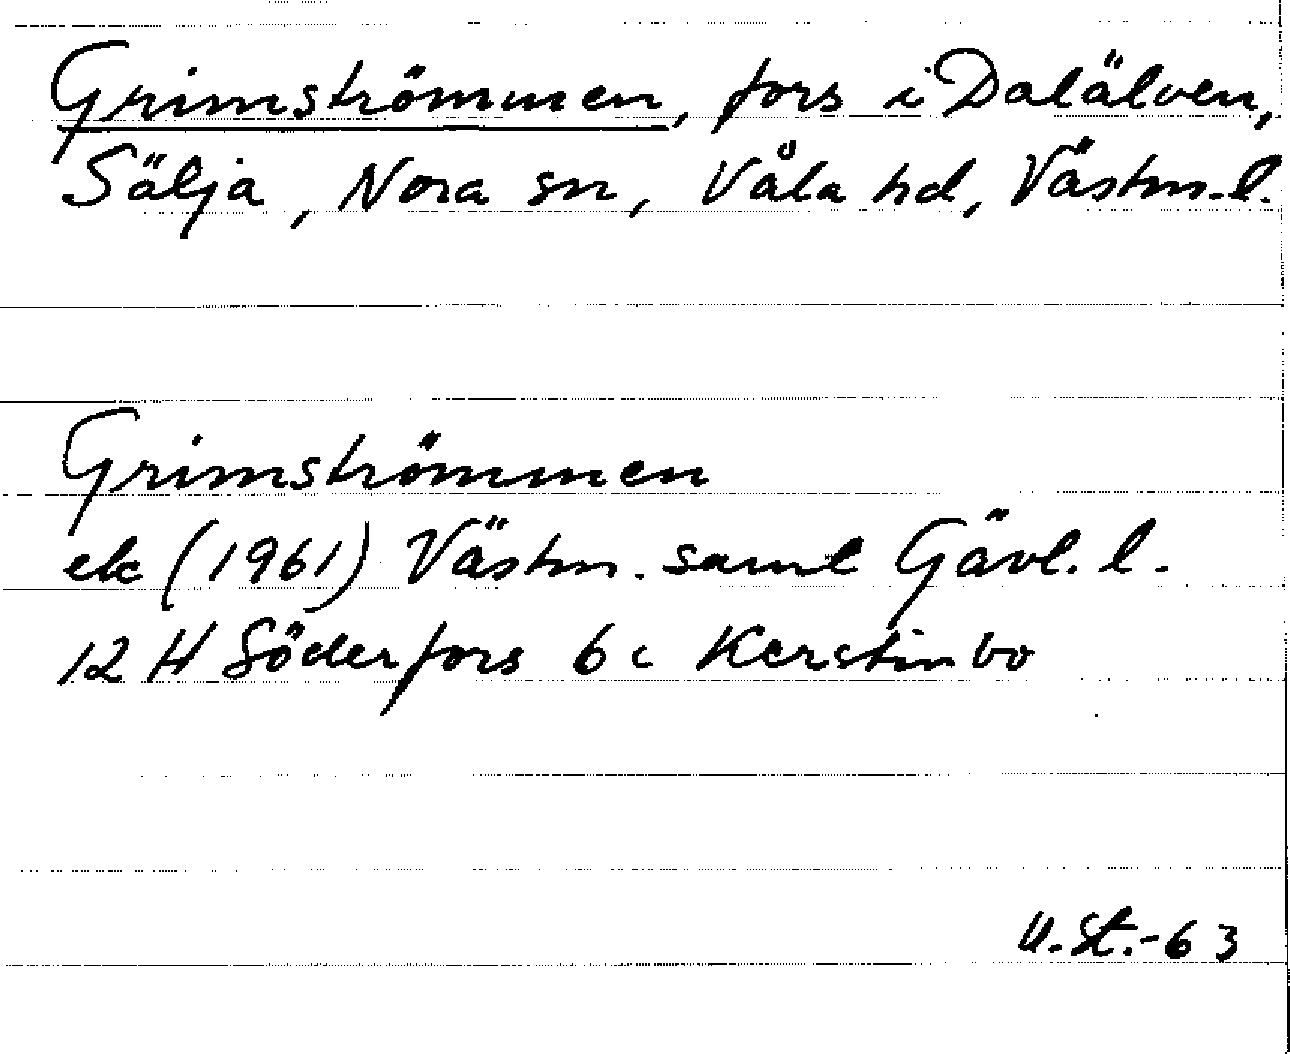 Grimströmmen, fors i Dalälven,
Sälja, Nora sn, Våla hd, Västm. l.
Grimströmmen
ek (1961) Västm. saml Gävl. l.
12 H Söderfors 6 c Kerstinbo
U.St.-63